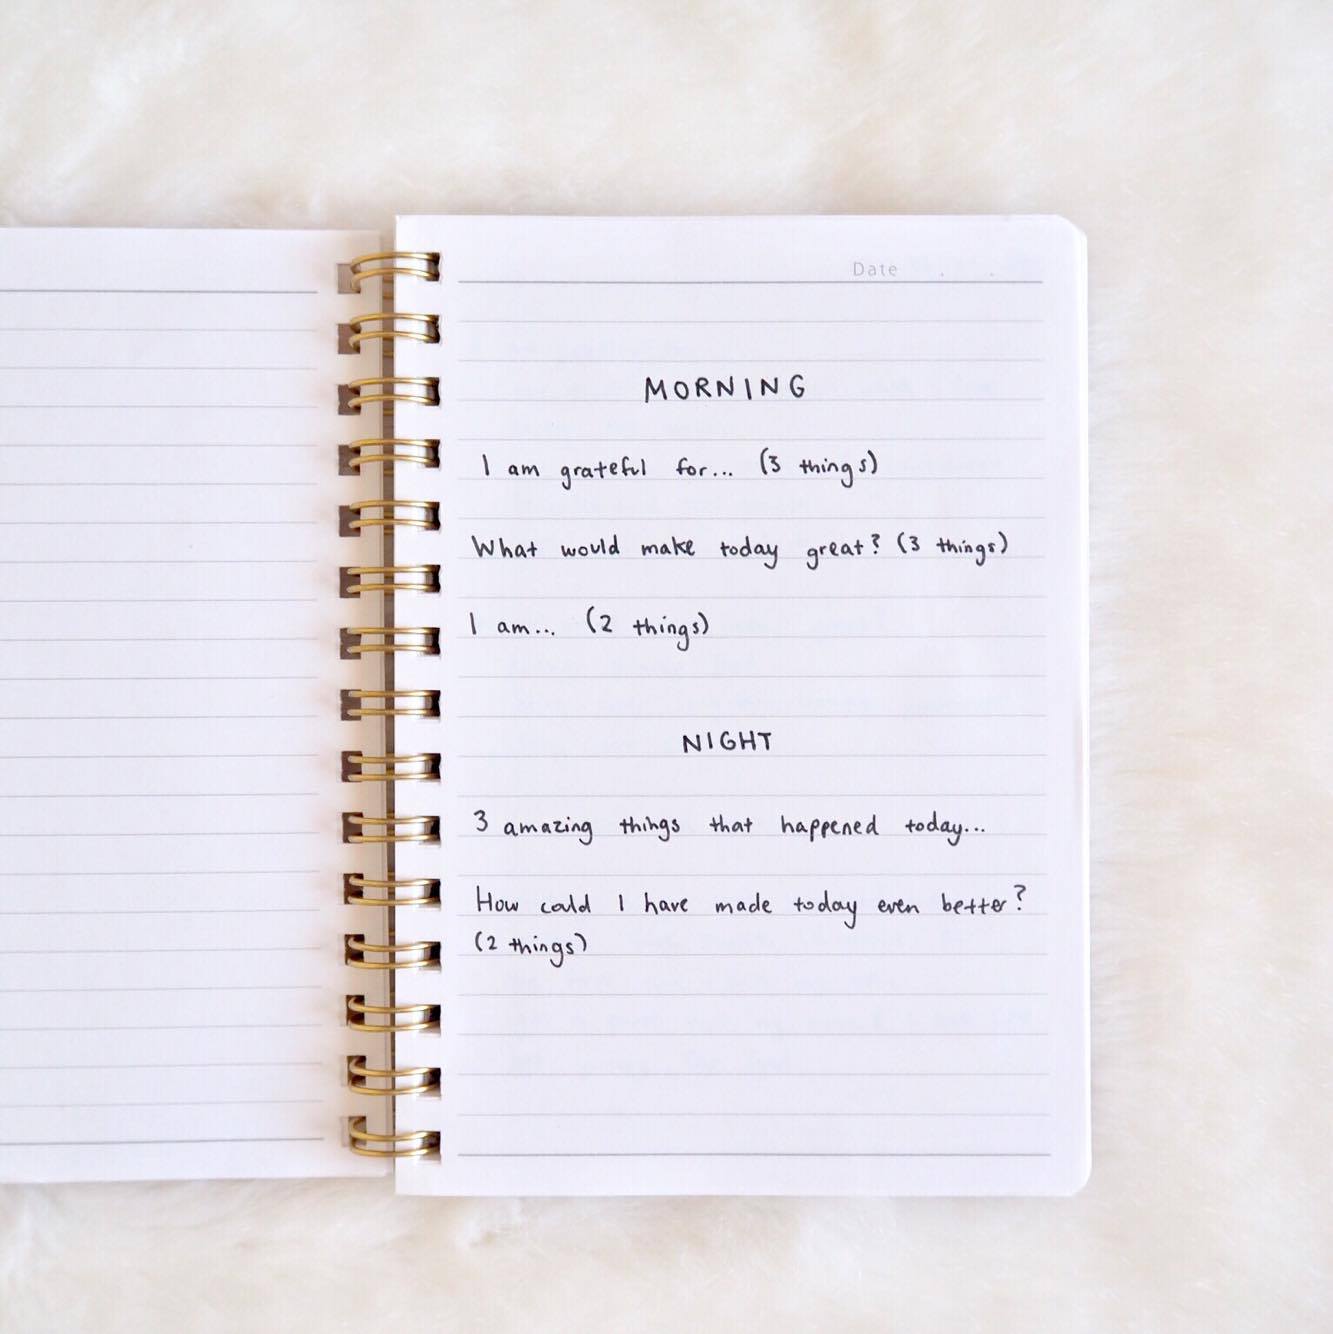 Date . .
MORNING
I am grateful for... (3 things)
What would make today great? (3 things)
I am... (2 things)
NIGHT
3 amazing things that happened today...
How could I have made today even better?
(2 things)